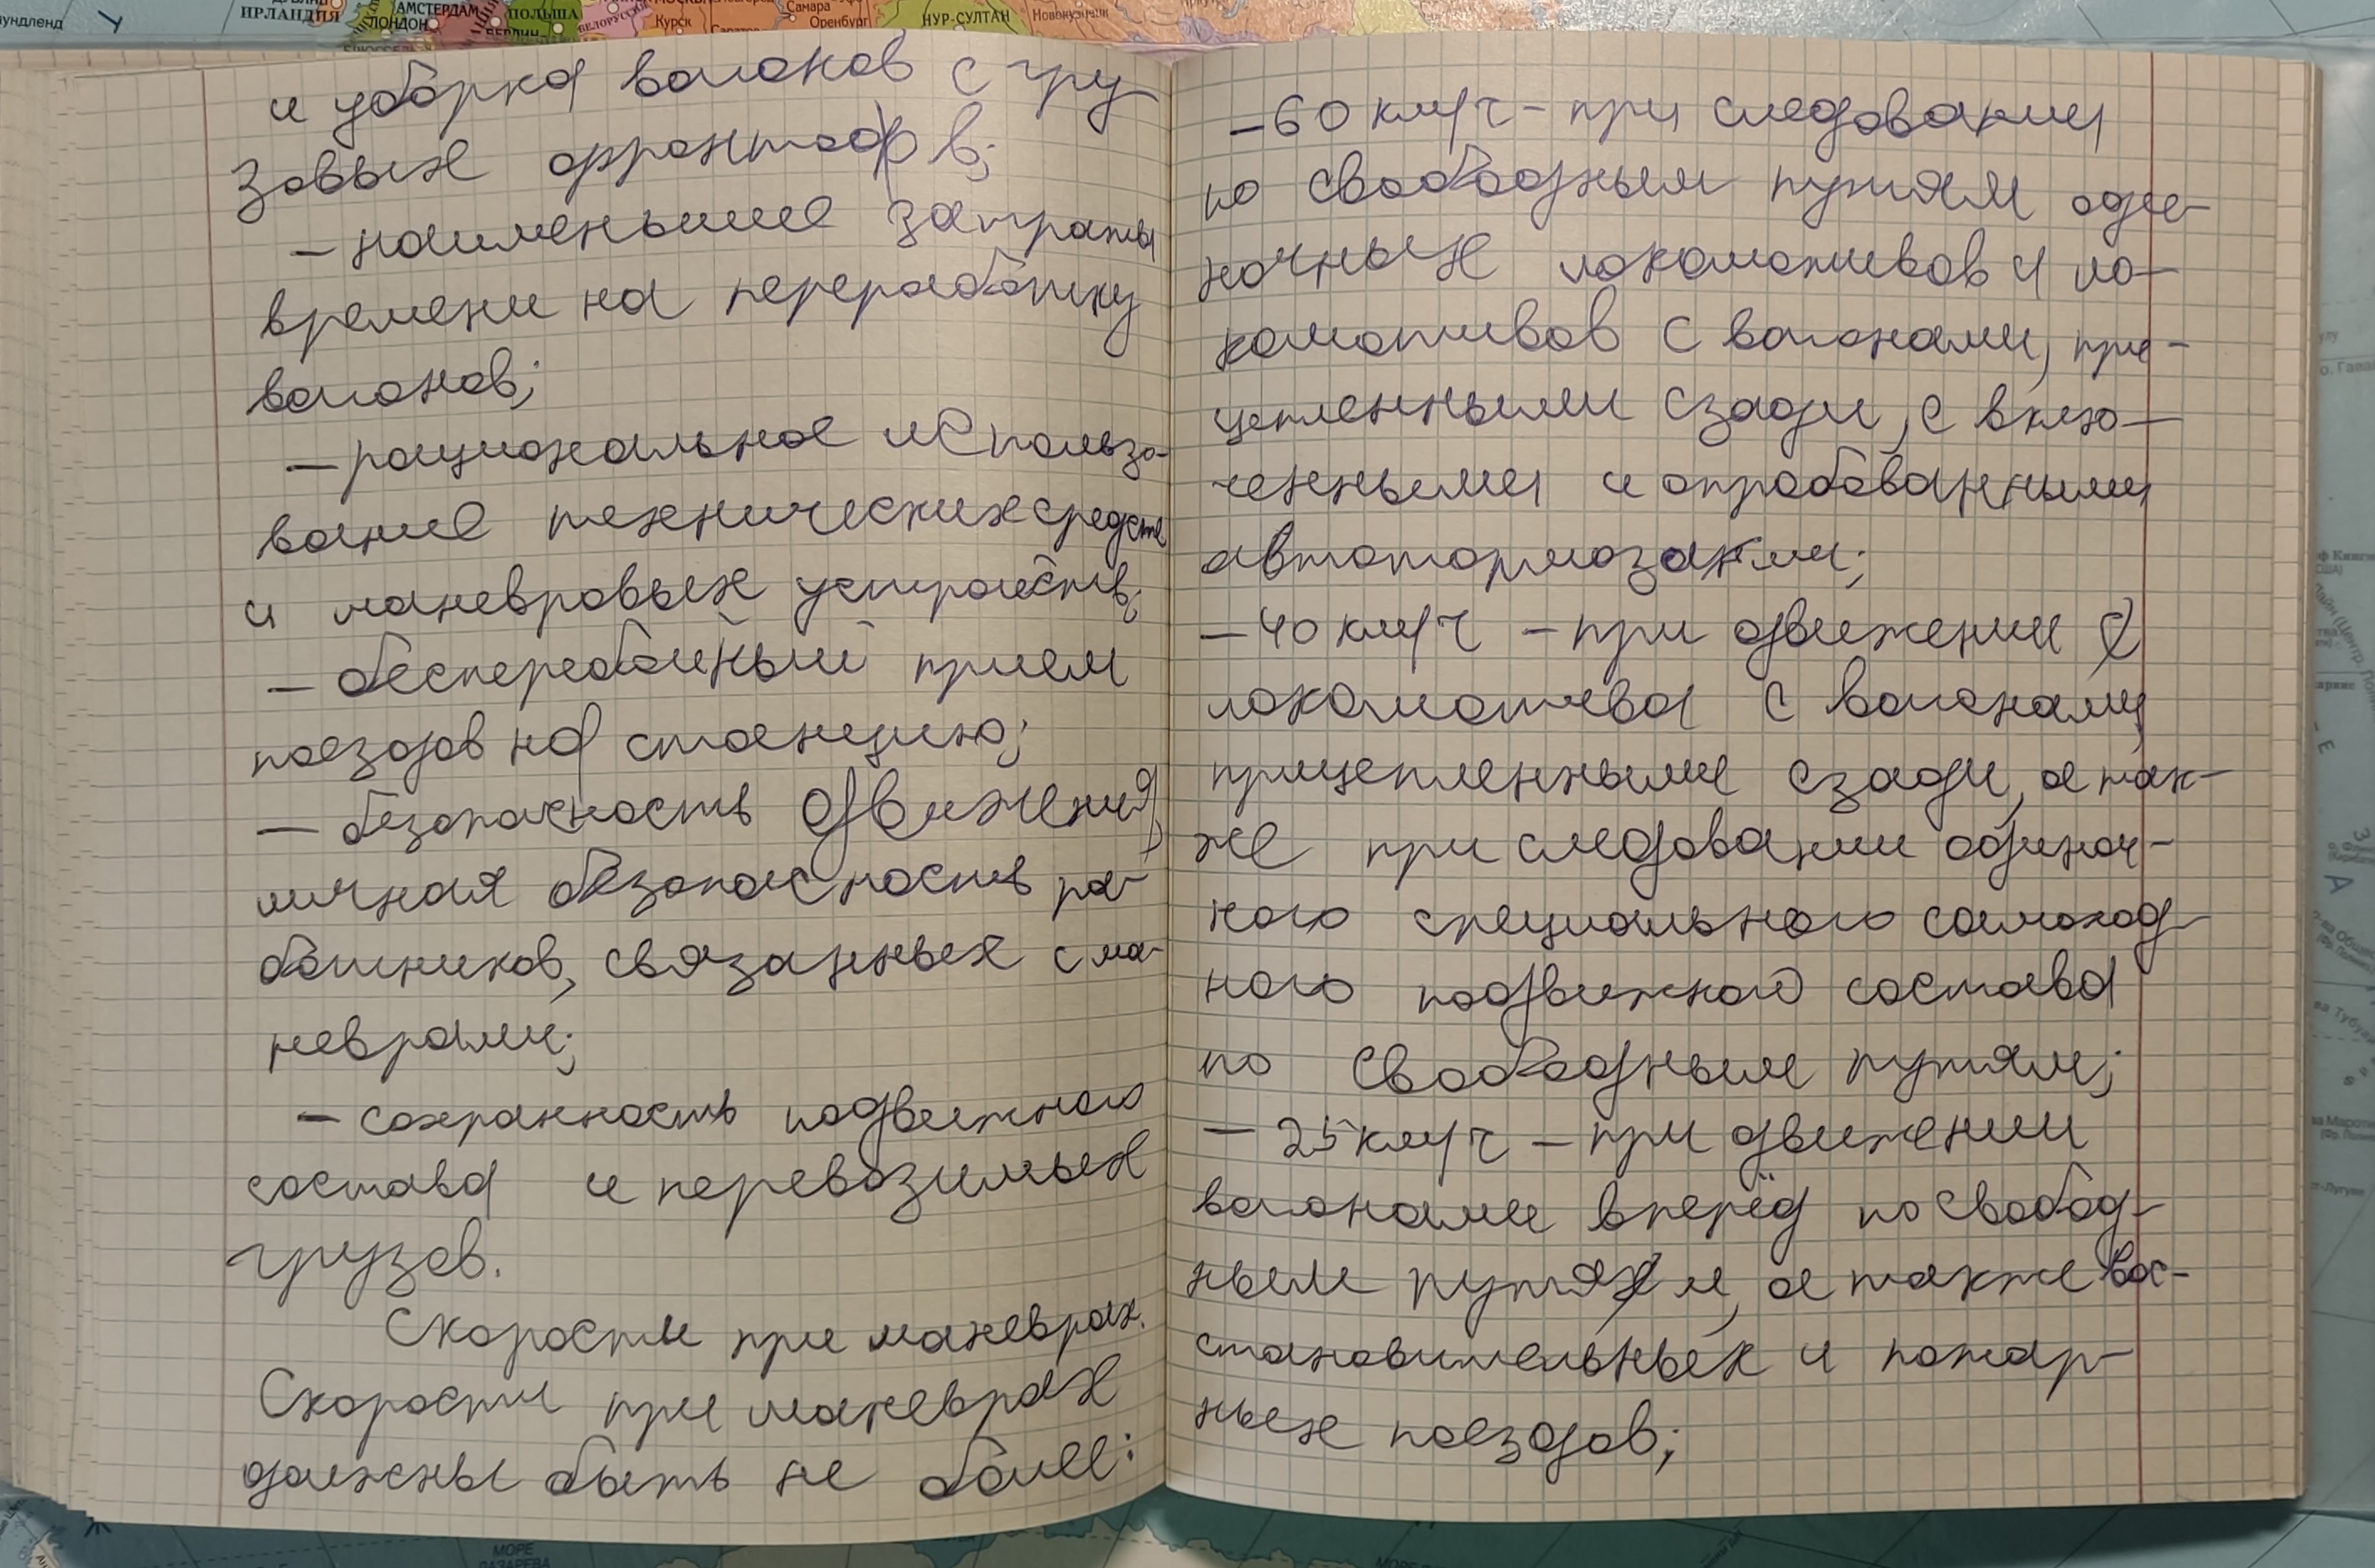 ИРЛАНДИЯ
АМСТЕРДАМ
ЛОНДОН
БЕРЛИН
ПОЛЬША
БЕЛОРУССИЯ
Курск
Самара
Оренбург
НУР-СУЛТАН
Новокузнецк
и уборка вагонов с гру
зовых фронтов;
- наименьшие затраты
времени на переработку
вагонов;
- рациональное использо-
вание технических средств
и маневровых устройств;
- бесперебойный прием
поездов на станцию;
- безопасность движения,
личная безопасность ра-
ботников, связанных с ма-
неврами;
- сохранность подвижного
состава и перевозимых
грузов.
Скорости при маневрах.
Скорости при маневрах
должны быть не более:
- 60 км/ч - при следовании
по свободным путям оди-
ночных локомотивов и ло-
комотивов с вагонами, при-
цепленными сзади, с вклю-
ченными и опробованными
автотормозами;
- 40 км/ч - при движении
локомотива с вагонами,
прицепленными сзади, а так-
же при следовании одиноч-
ного специального самоход-
ного подвижного состава
по свободным путям;
- 25 км/ч - при движении
вагонами вперёд по свобод-
ным путям, а также вос-
становительных и пожар-
ных поездов;
МОРЕ
ЛАЗАРЕВА
МОРЕ